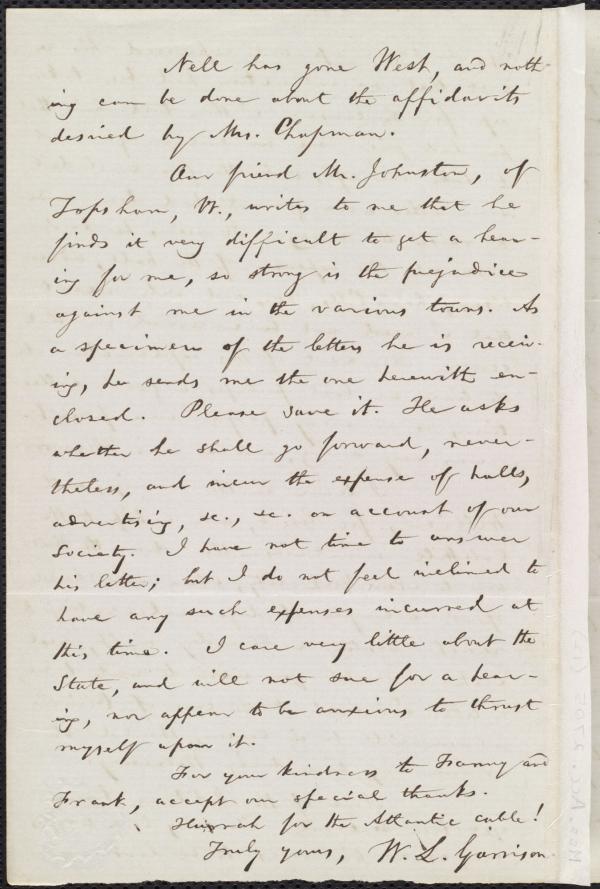 Nell has gone West, and noth-
ing can be done about the affidavits
desired by Mrs. Chapman.
Our friend Mr. Johnston, of
Topsham, Vt., writes to me that he
finds it very difficult to get a hear-
ing for me, so strong is the prejudice
against me in the various towns. As
a specimen of the letters he is receiv-
ing, he sends me the one herewith en-
closed. Please save it. He asks
whether he shall go forward, never-
theless, and incur the expense of halls,
advertising, &c., &c. on account of our
Society. I have not time to answer
his letter; but I do not feel inclined to
have any such expenses incurred at
this time. I care very little about the
State, and will not sue for a hear-
ing, nor appear to be anxious to thrust
myself upon it.
For your kindness to Fanny and
Frank, accept our special thanks.
Hurrah for the Atlantic cable!
Truly yours, W. L. Garrison.